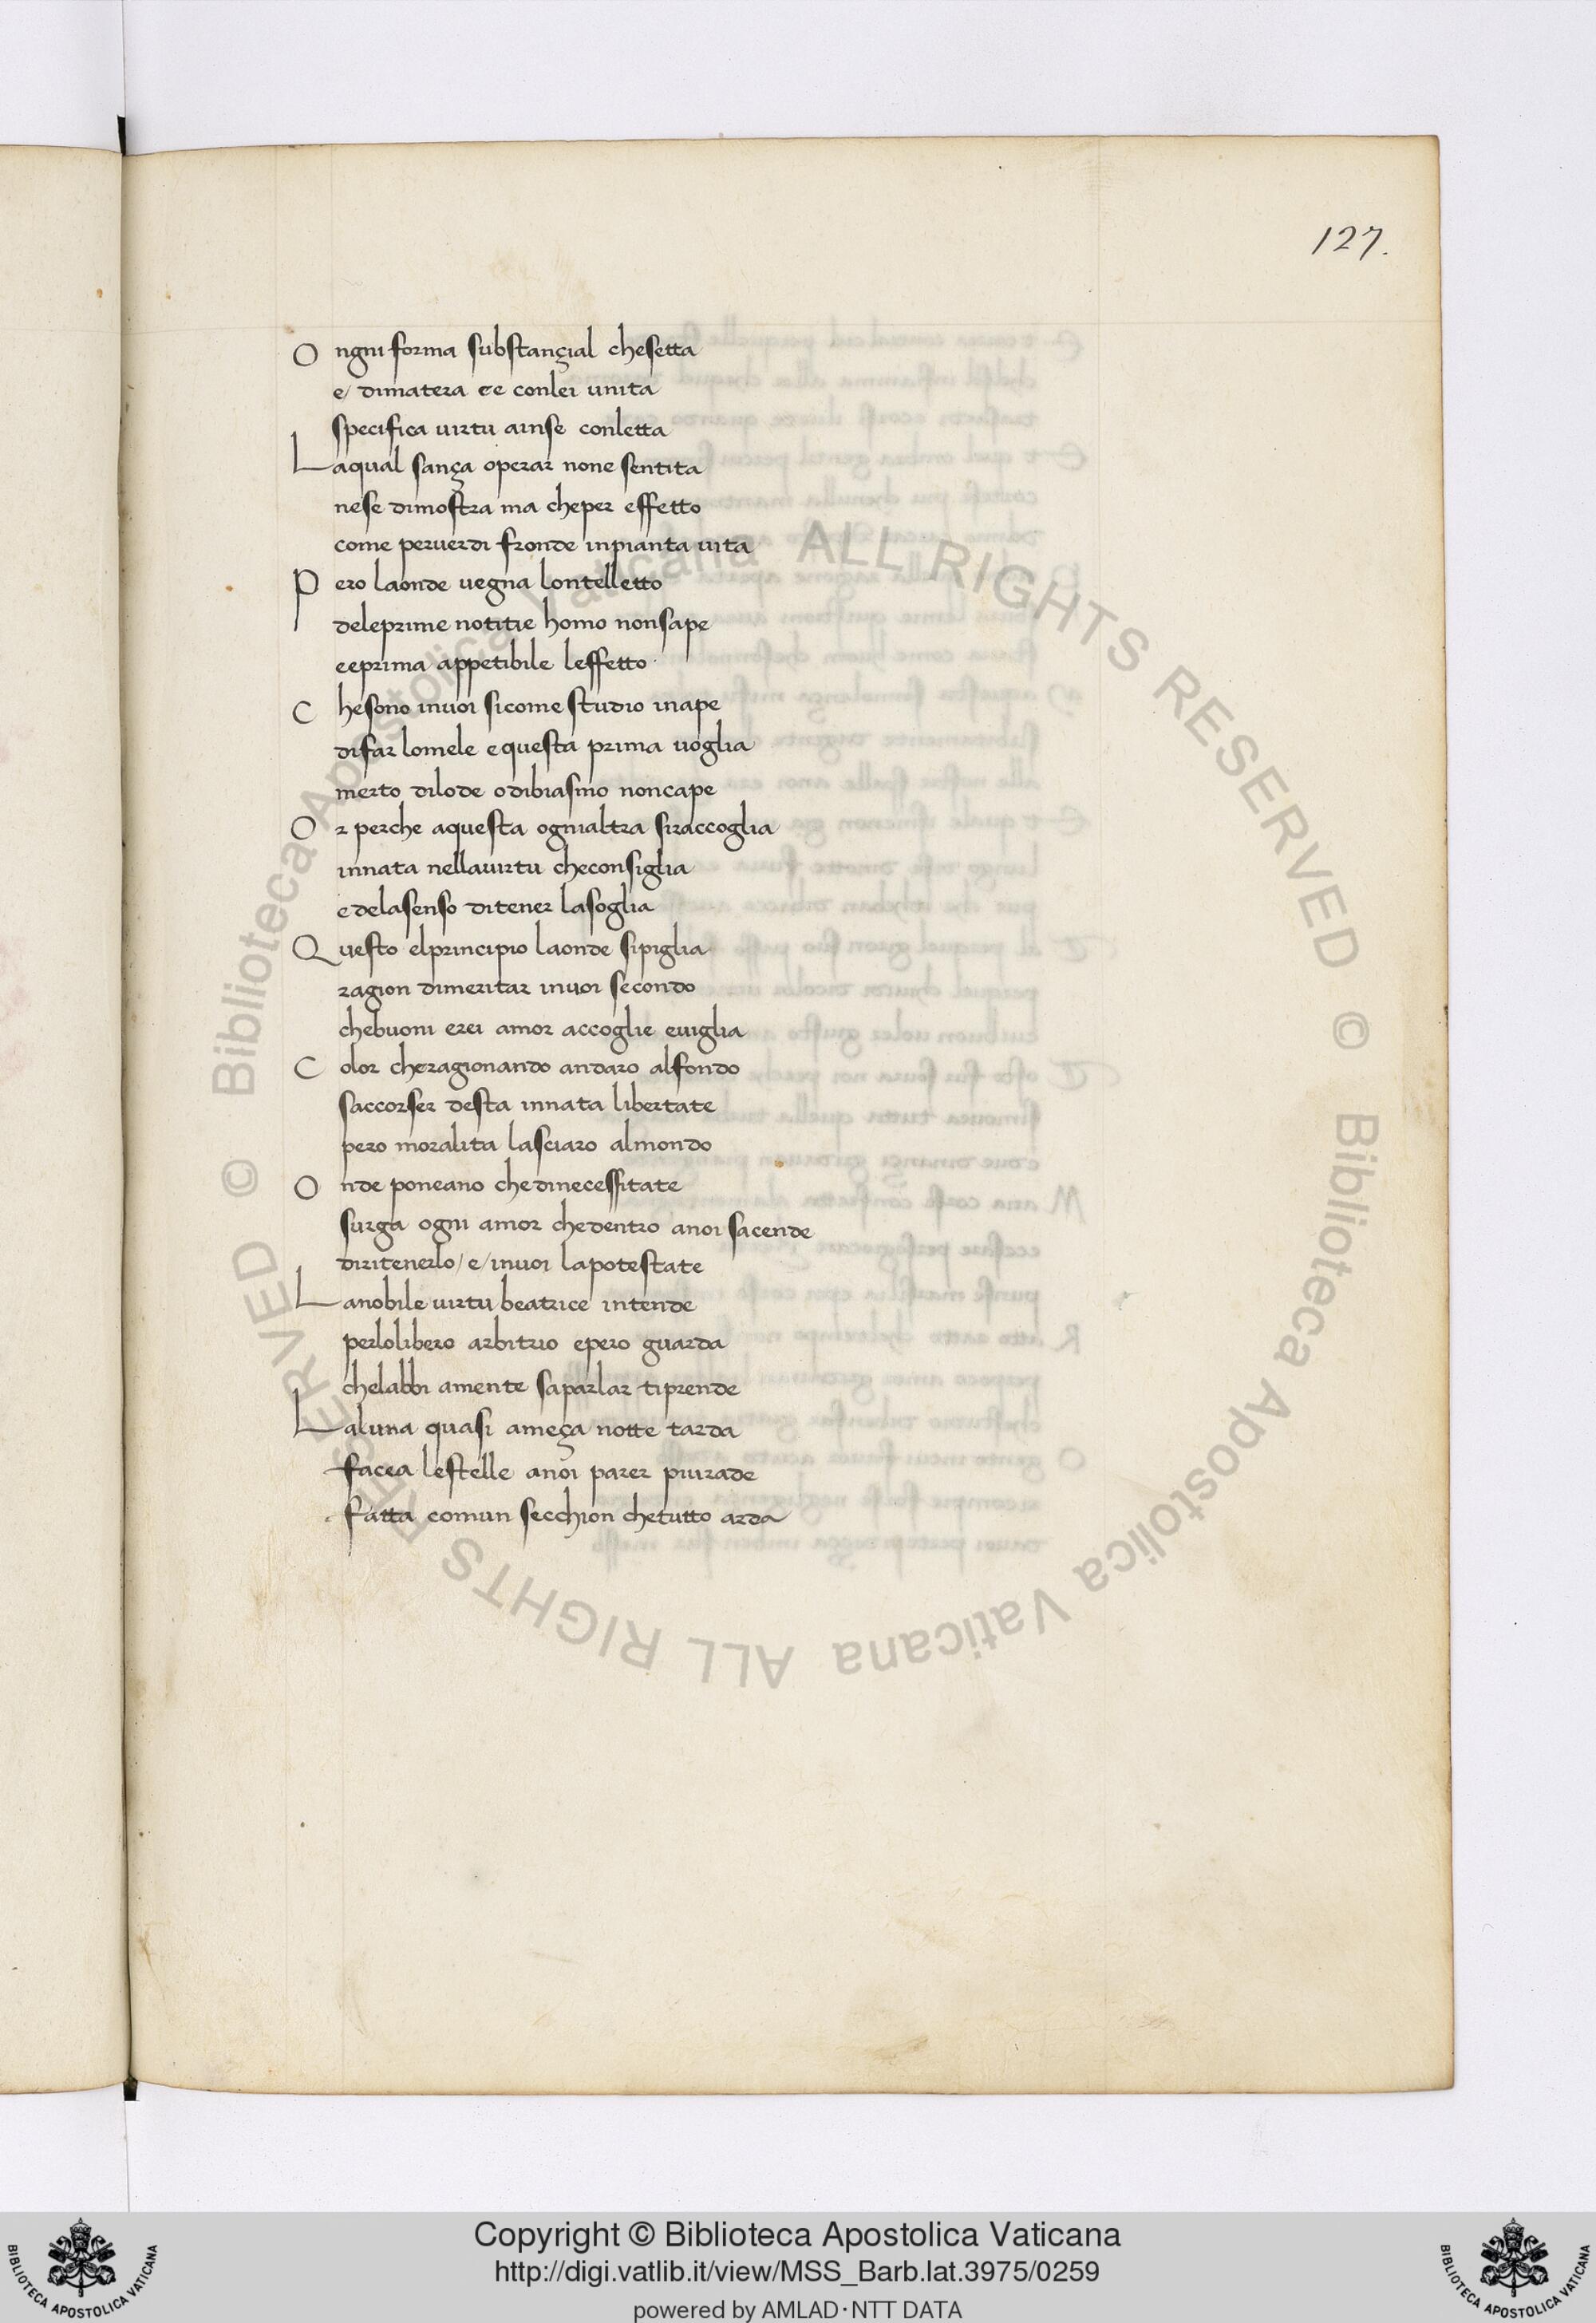 127.
Ongni forma substançial chesetta
e/ dimatera ee conlei unita
specifica uirtu ainse conletta
Laqual sança operar none sentita
nese dimostra ma cheper effetto
come peruerdi fronde inpianta vita
Pero laonde vegna lontelletto
deleprime notitie homo nonsape
eeprima appetibile leffetto
Chesono inuoi sicome studio inape
difar lomele equesta prima uoglia
merto dilode odibiasmo noncape
Or perche aquesta ognialtra siraccoglia
innata nellauirtu checonsiglia
edelasenso ditener lasoglia
Questo elprincipio laonde sipiglia
ragion dimeritar inuoi secondo
chebuoni erei amor accoglie euiglia
Color cheragionando andaro alfondo
saccorser desta innata libertate
pero moralita lasciaro almondo
Onde poneano chedinecessitate
surga ogni amor chedentro anoi sacende
diritenerlo/e/inuoi lapotestate
Lanobile uirtu beatrice intende
perlolibero arbitrio epero guarda
chelabbi amente saparlar tiprende
Laluna quasi ameça notte tarda
facea lestelle anoi parer piurade
fatta comun secchion chetutto arda
© Biblioteca Apostolica Vaticana ALL RIGHTS RESERVED © Biblioteca Apostolica Vaticana ALL RIGHTS RESERVED
Copyright © Biblioteca Apostolica Vaticana
http://digi.vatlib.it/view/MSS_Barb.lat.3975/0259
powered by AMLAD·NTT DATA
BIBLIOTECA APOSTOLICA VATICANA
BIBLIOTECA APOSTOLICA VATICANA